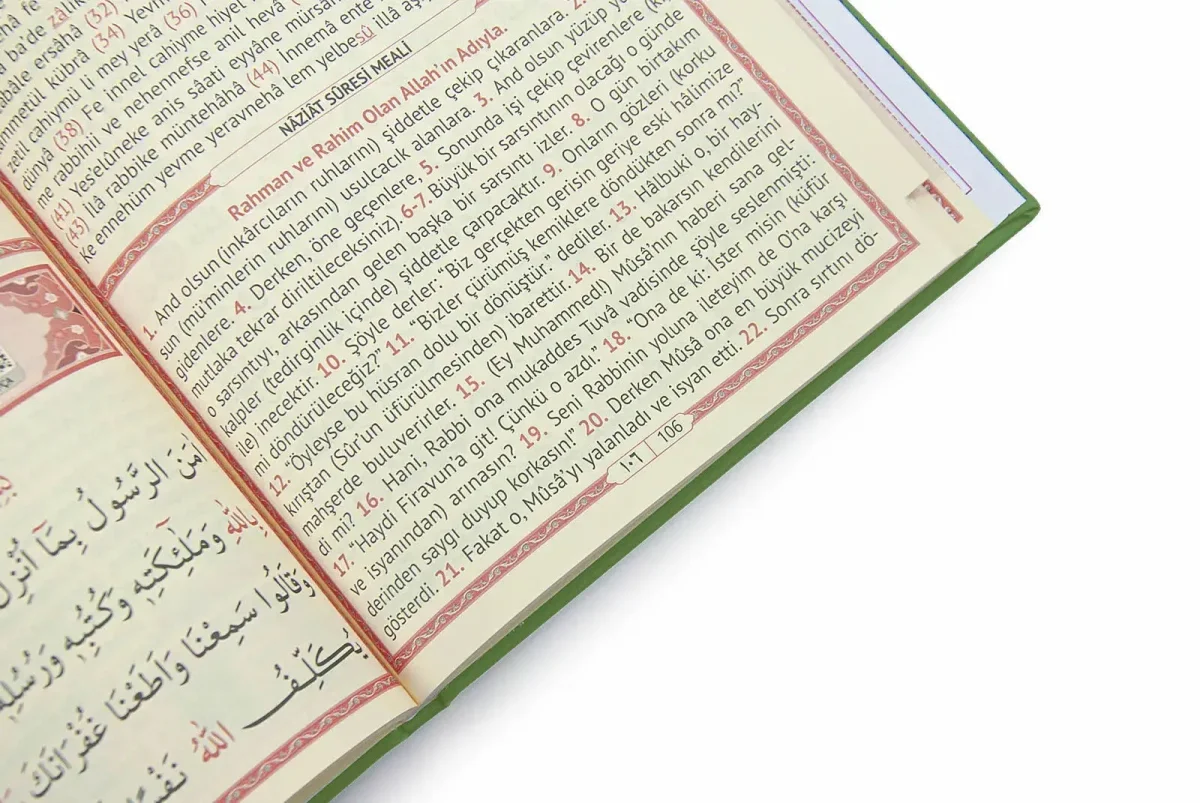 ba'de zâlike
ersâhâ (32)
kübrâ (34) Yevme
cahiymü li mey yerâ (36)
dünyâ (38) Fe innel cahiyme hiyel
me rabbihiî ve nehennefse anil hevâ
(41) Yes'elûneke anis sâati eyyâne mürsâ
(43) İlâ rabbike müntehâhâ (44) İnnemâ ente
ke ennenüm yevme yeravnehâ lem yelbesû illâ aş
NÂZİÂT SÛRESİ MEALİ
Rahman ve Rahim Olan Allah'ın Adıyla.
1. And olsun (inkârcıların ruhlarını) şiddetle çekip çıkaranlara. 2.
sun (müminlerin ruhlarını) usulcacık alanlara. 3. And olsun yüzüp yü
gidenlere. 4. Derken, öne geçenlere, 5. Sonunda işi çekip çevirenlere (k
mutlaka tekrar diriltileceksiniz). 6-7. Büyük bir sarsıntının olacağı o günde
o sarsıntıyı, arkasından gelen başka bir sarsıntı izler. 8. O gün birtakım
kalpler (tedirginlik içinde) şiddetle çarpacaktır. 9. Onların gözleri (korku
ile) inecektir. 10. Şöyle derler: “Biz gerçekten gerisin geriye eski hâlimize
mi döndürüleceğiz?” 11. “Bizler çürümüş kemiklere döndükten sonra mı?”
12. “Öyleyse bu hüsran dolu bir dönüştür.” dediler. 13. Hâlbuki o, bir hay-
kırıştan (Sûr'un üfürülmesinden) ibarettir. 14. Bir de bakarsın kendilerini
mahşerde buluverirler. 15. (Ey Muhammed!) Mûsânın haberi sana gel-
di mi? 16. Hani, Rabbi ona mukaddes Tuvâ vadisinde şöyle seslenmişti:
17. “Haydi Firavun'a git! Çünkü o azdı. 18. “Ona de ki: İster misin (küfür
ve isyanından) arınasın? 19. Seni Rabbinin yoluna ileteyim de O'na karşı
derinden saygı duyup korkasın!” 20. Derken Mûsâ ona en büyük mucizeyi
gösterdi. 21. Fakat o, Mûsâ'yı yalanladı ve isyan etti. 22. Sonra sırtını dö-
١٠٦ 106
اٰمَنَ الرَّسُولُ بِمَٓا اُنْزِلَ
بِاللّٰهِ وَمَلٰٓئِكَتِه۪ وَكُتُبِه۪ وَرُسُلِه۪
وَقَالُوا سَمِعْنَا وَاَطَعْنَا غُفْرَانَكَ
يُكَلِّفُ اللّٰهُ نَفْسًا